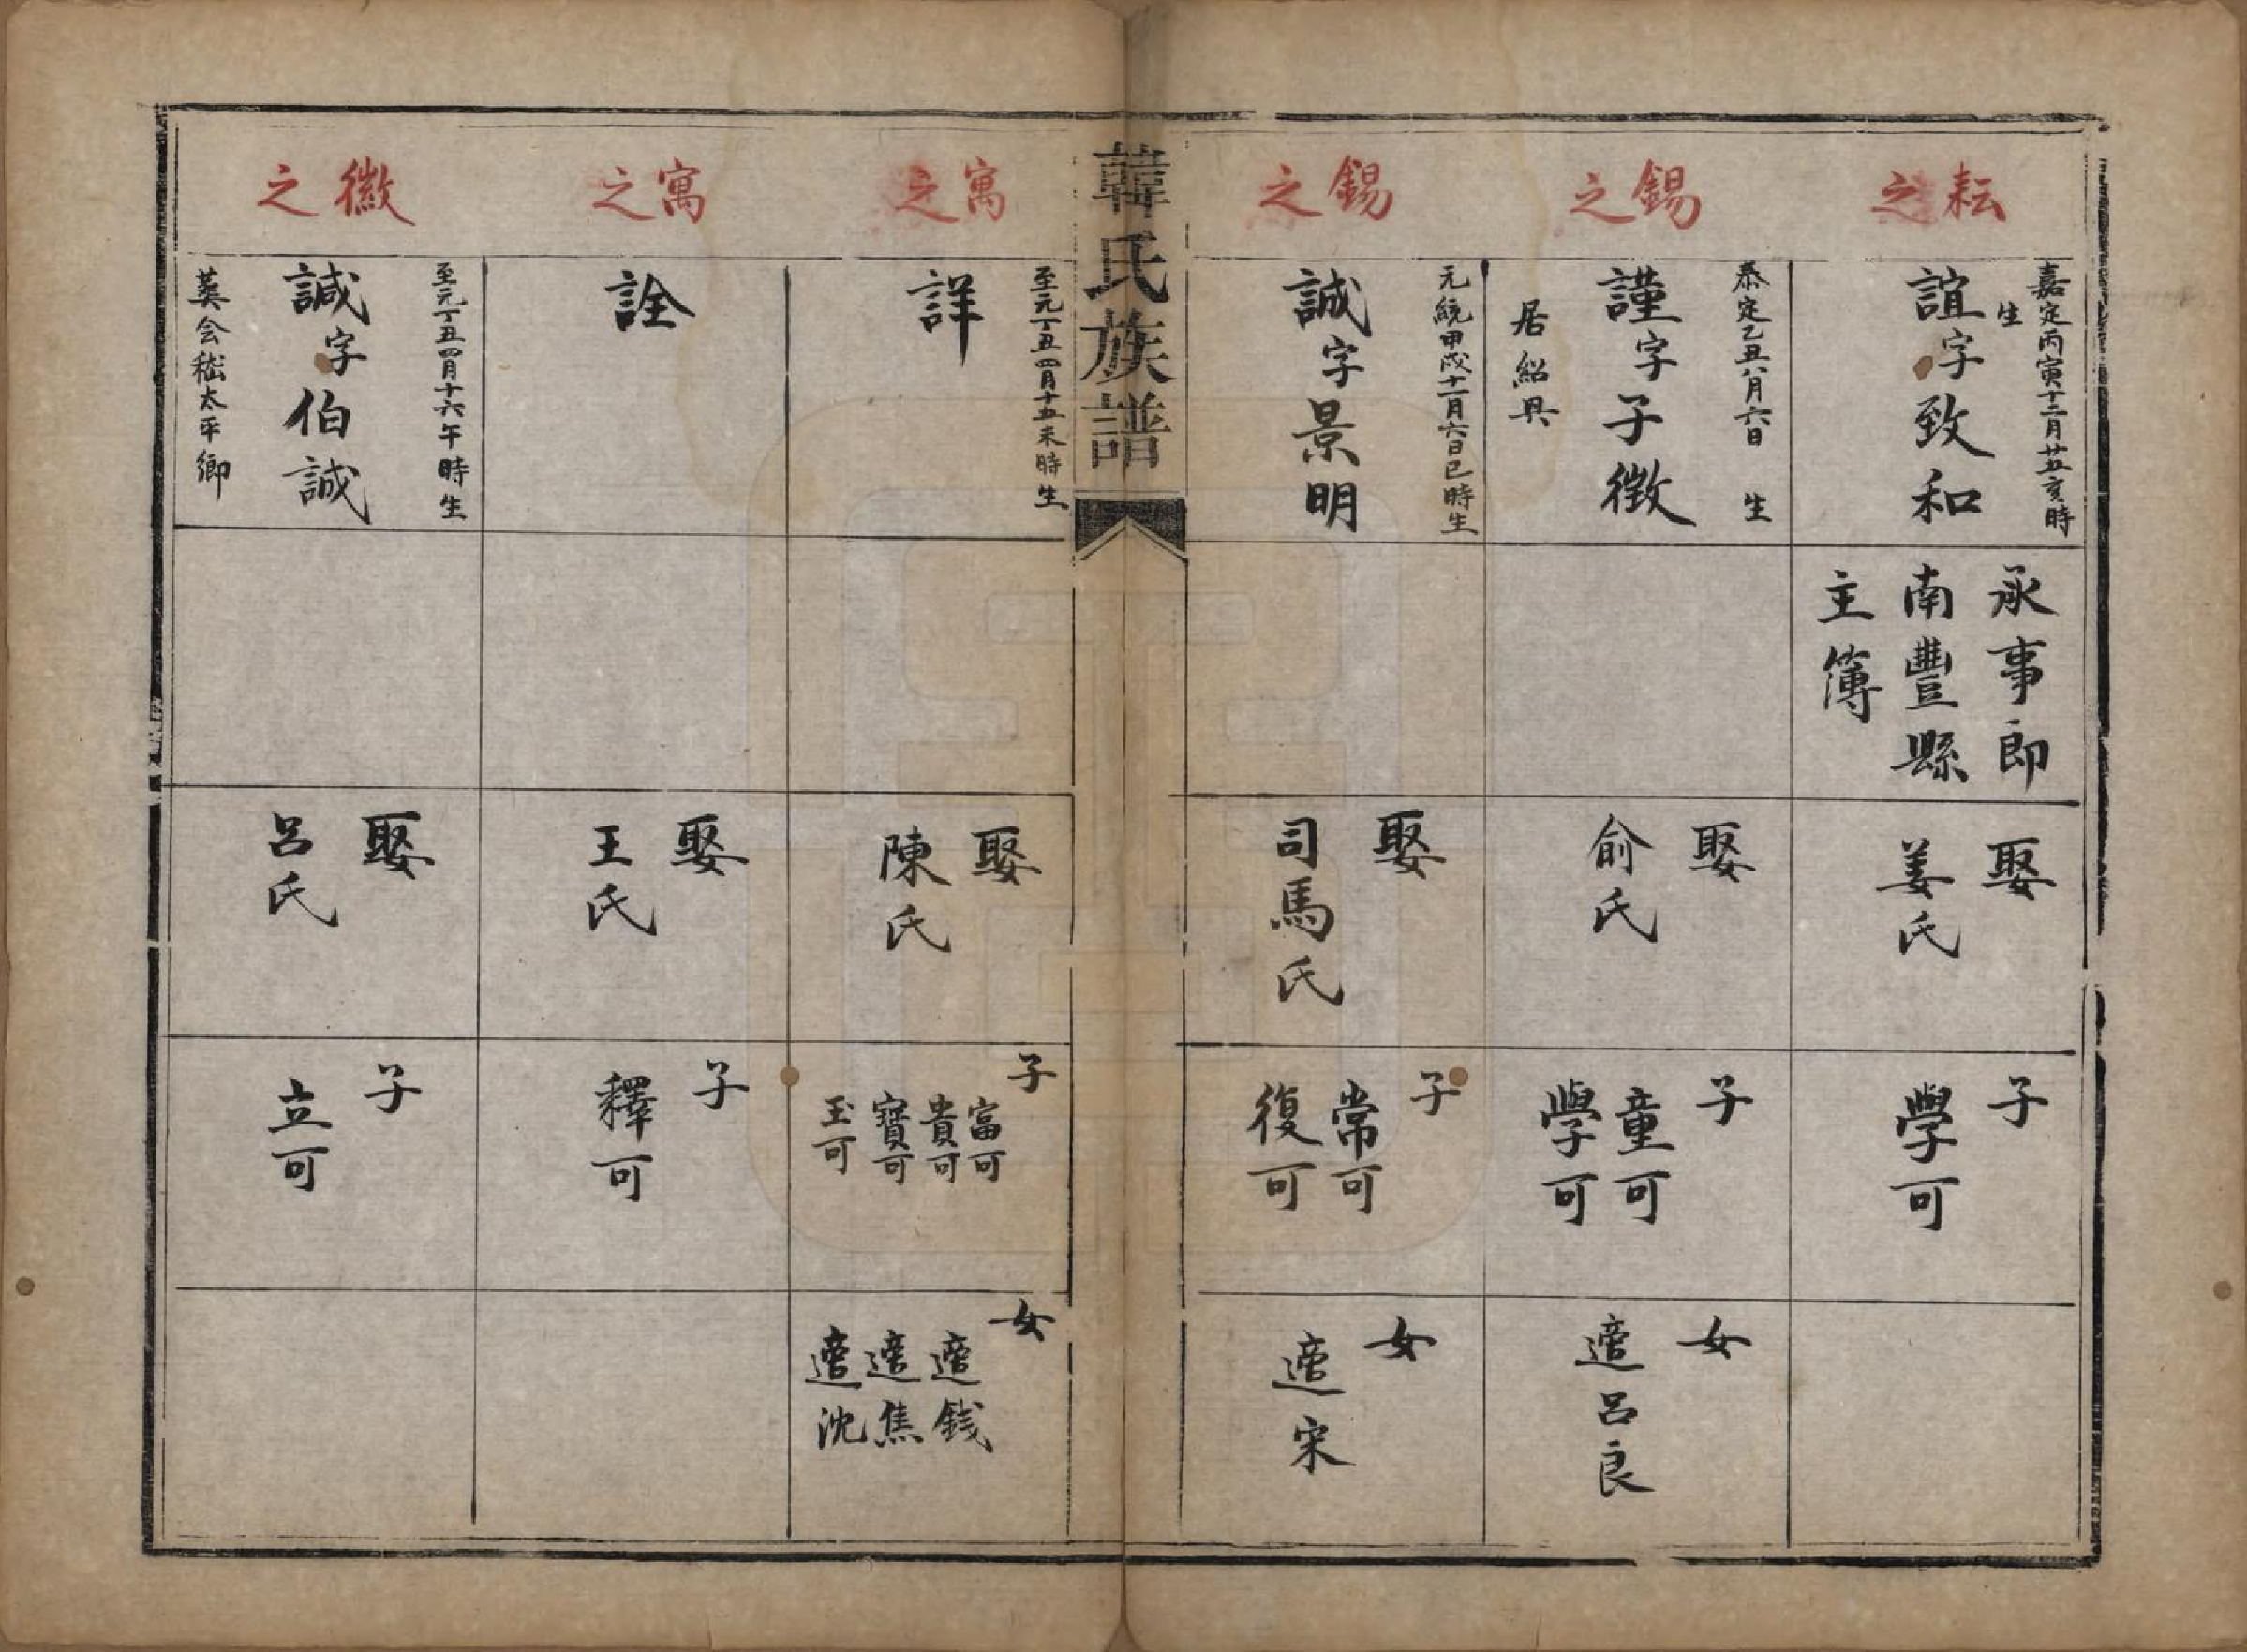 耘之
嘉定丙寅十二月廿五亥時
生
誼字致和
承事郎
南豐縣
主簿
娶
姜氏
子
學可
錫之
泰定乙丑八月六日 生
謹字子徵
居紹興
娶
俞氏
子
童可
學可
女
適呂良
錫之
元統甲戌十一月六日巳時生
誠字景明
娶
司馬氏
子
常可
復可
女
適宋
韓氏族譜
寓之
至元丁丑四月十五未時生
詳
娶
陳氏
子
富可
貴可
寶可
玉可
女
適錢
適焦
適沈
寓之
詮
娶
王氏
子
釋可
徽之
至元丁丑四月十六午時生
諴字伯誠
葬会嵇太平鄉
娶
呂氏
子
立可